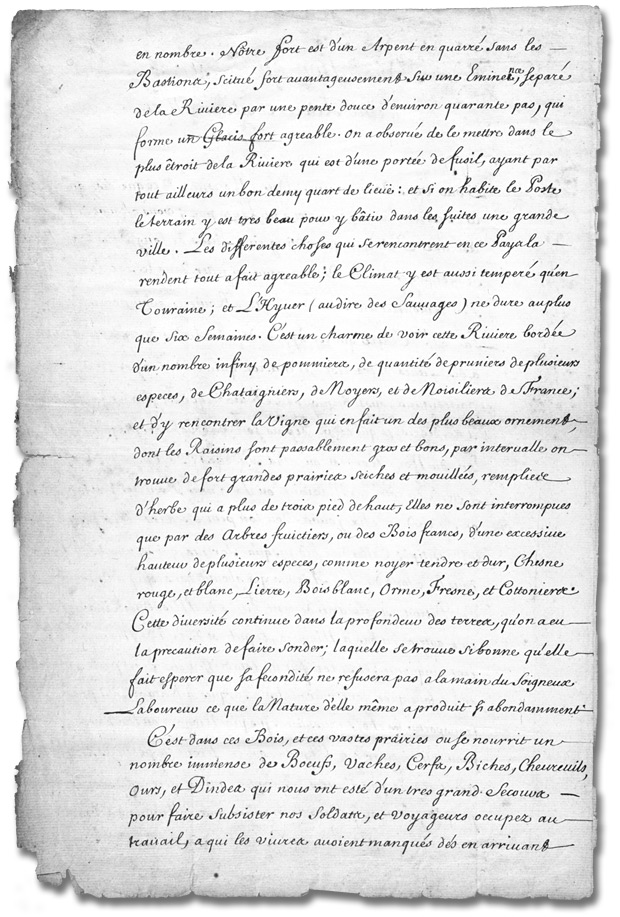 en nombre. Nôtre fort est d'un Arpent en quarré sans les
Bastions, scitué fort avantageusement sur une Eminence, separé
de la Riviere par une pente douce d'environ quarante pas, qui
forme un Glacis fort agreable. On a observé de le mettre dans le
plus êtroit de la Riviere qui est d'une portée de fusil, ayant par
tout ailleurs un bon demy quart de lieüe: et si on habite le Poste
le terrain y est tres beau pour y bâtir dans les suites une grande
ville. Les differentes choses qui se rencontrent en ce Pays la
rendent tout a fait agreable; le Climat y est aussi temperé qu'en
Touraine; et L'Hyver (au dire des Sauvages) ne dure au plus
que Six Semaines. C'est un charme de voir cette Riviere bordée
d'un nombre infiny de pommiers, de quantité de pruniers de plusieurs
especes, de Chataigniers, de Noyers, et de Noisiliers de France;
et d'y rencontrer la Vigne qui en fait un des plus beaux ornements,
dont les Raisins sont passablement gros et bons, par intervalle on
trouve de fort grandes prairies seiches et mouillés, remplies
d'herbe qui a plus de trois pied de haut, Elles ne sont interrompues
que par des Arbres fruictiers, ou des Bois francs, d'une excessive
hauteur de plusieurs especes, comme noyer tendre et dur, Chesne
rouge, et blanc, Lierre, Bois blanc, Orme, Fresne, et Cottoniers.
Cette diversité continue dans la profondeur des terres, qu'on a eu
la precaution de faire sonder; laquelle se trouve si bonne qu'elle
fait esperer que sa fecondité ne refusera pas a la main du Soigneux
Laboureur ce que la Nature d'elle même a produit si abondamment.
C'est dans ces Bois, et ces vastes prairies ou se nourrit un
nombre immense de Boeufs, Vaches, Cerfs, Biches, Chevreuils,
Ours, et Dindes qui nous ont esté d'un tres grand Secours
pour faire subsister nos Soldats, et voyageurs occupez au
travail, a qui les vivres avoient manqués dés en arrivant